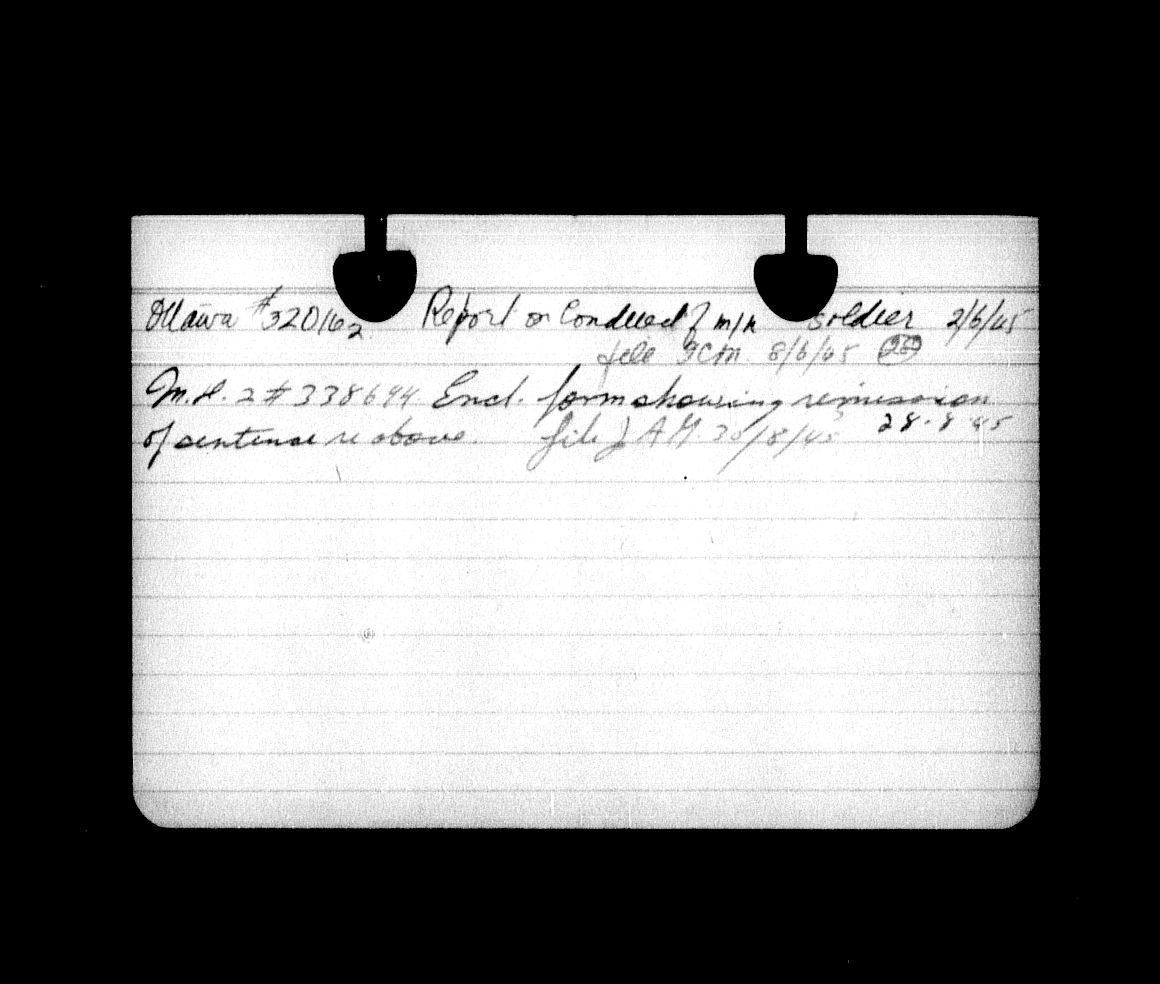 Ottawa #320162 Report on Conduct of m/n soldier 2/6/45
file GCM. 8/6/45 25
M.H. 2 # 338694 Encl. form showing remission
of sentence re above. file J AG. 30/8/45 28-8-45